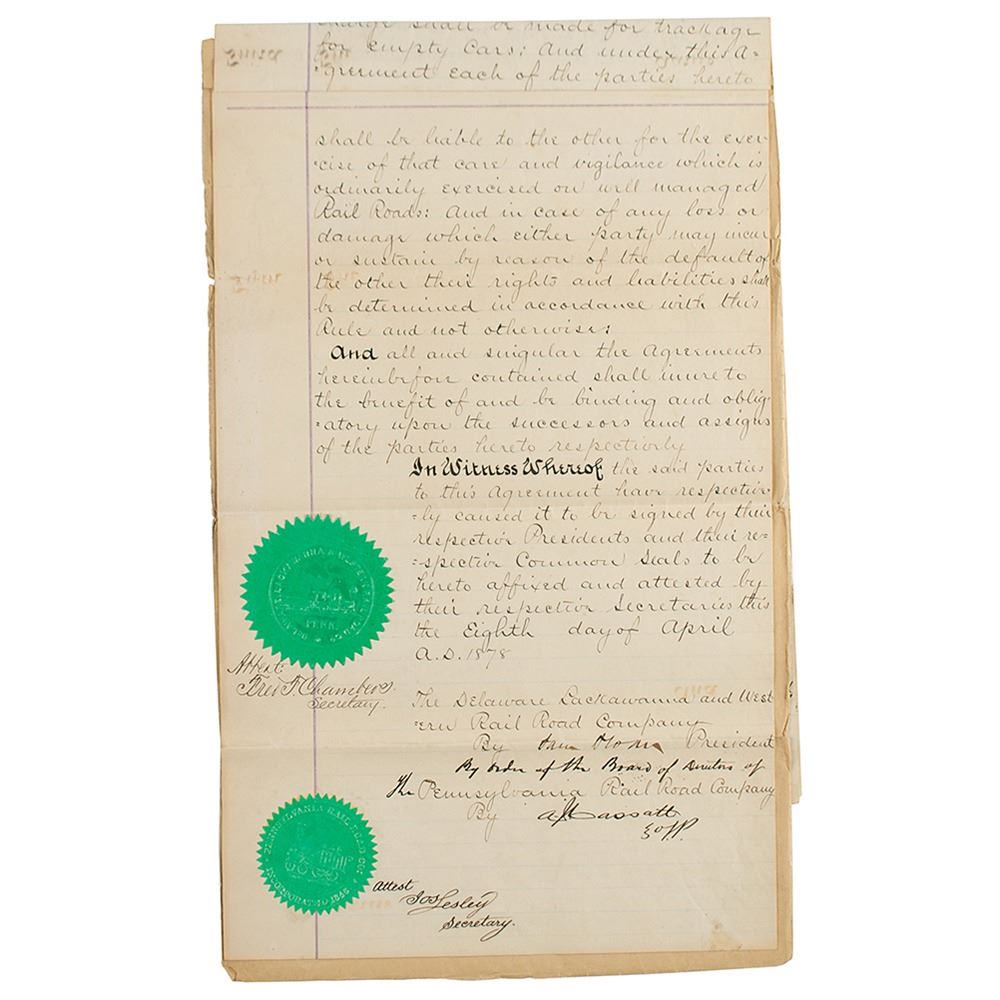 charge shall be made for trackage
for empty Cars; And under this A-
-greement each of the parties hereto
shall be liable to the other for the exer-
-cise of that care and vigilance which is
ordinarily exercised on well managed
Rail Roads: And in case of any loss or
damage which either party may incur
or sustain by reason of the default of
the other their rights and liabilities shall
be determined in accordance with this
Rule and not otherwise;
And all and singular the Agreements
hereinbefore contained shall inure to
the benefit of and be binding and oblig-
=atory upon the successors and assigns
of the parties hereto respectively
In Witness Whereof the said parties
to this Agreement have respective-
=ly caused it to be signed by their
respective Presidents and their re=
=spective Common Seals to be
hereto affixed and attested by
their respective Secretaries this
the Eighth day of April
A.D. 1878
PENN.
Attest:
Fred F Chambers.
Secretary.
The Delaware Lackawanna and West
=ern Rail Road Company
By Sam Sloan President
By order of the Board of Directors of
The Pennsylvania Rail Road Company
By A J Cassatt
3d V.P.
PENNSYLVANIA RAIL ROAD CO.
INCORPORATED 1846
Attest
Jos Lesley
Secretary.